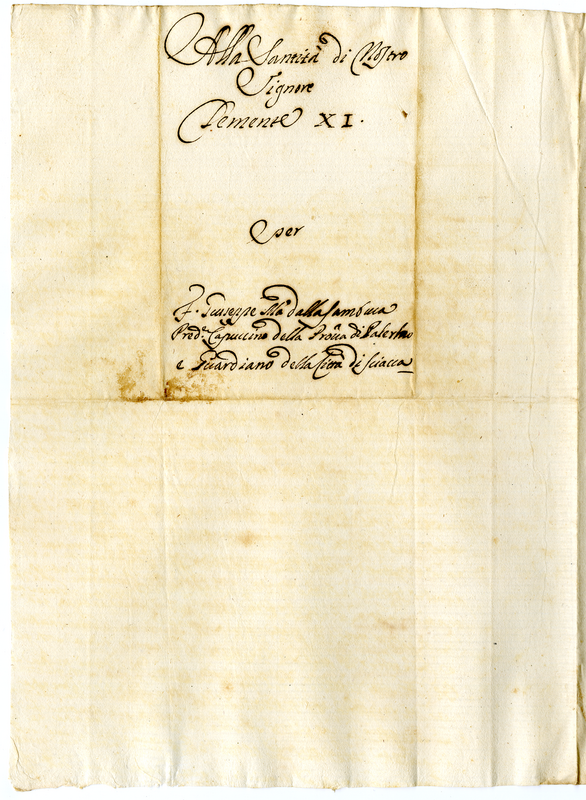 Alla Santità di Nostro
Signore
Clemente XI.
per
F. Giuseppe M.a dalla Sambuca
Pred.e Capuccino della Prov.a di Palermo
e Guardiano della Città di Sciacca